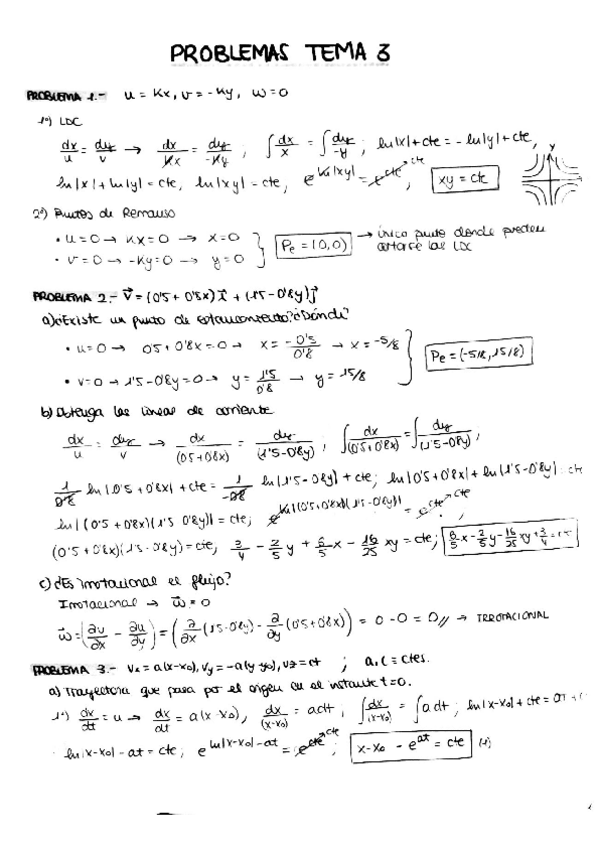 PROBLEMAS TEMA 3
PROBLEMA 1.- u = Kx, v = -Ky, w = 0
1º) LDC
dx/u = dy/v → dx/Kx = dy/-Ky ; ∫dx/x = ∫dy/-y ; ln|x| + cte = -ln|y| + cte,
ln|x| + ln|y| = cte, ln|xy| = cte, e^ln|xy| = e^cte → cte ; xy = cte
y
2º) Puntos de Remanso
• u = 0 → Kx = 0 → x = 0
• v = 0 → -Ky = 0 → y = 0
Pe = (0,0) → único punto donde pueden cortarse las LDC
PROBLEMA 2.- V = (0'5 + 0'8x) i + (1'5 - 0'8y) j
a) ¿Existe un punto de estancamiento? ¿Dónde?
• u = 0 → 0'5 + 0'8x = 0 → x = -0'5/0'8 → x = -5/8
• v = 0 → 1'5 - 0'8y = 0 → y = 1'5/0'8 → y = 15/8
Pe = (-5/8, 15/8)
b) Obtenga las lineas de corriente
dx/u = dy/v → dx/(0'5+0'8x) = dy/(1'5-0'8y) ; ∫dx/(0'5+0'8x) = ∫dy/(1'5-0'8y) ;
1/0'8 ln|0'5 + 0'8x| + cte = 1/-0'8 ln|1'5 - 0'8y| + cte ; ln|0'5 + 0'8x| + ln|1'5 - 0'8y| = cte
ln|(0'5 + 0'8x)(1'5 - 0'8y)| = cte ; e^ln|(0'5+0'8x)(1'5-0'8y)| = e^cte → cte ;
(0'5 + 0'8x)(1'5 - 0'8y) = cte, 3/4 - 2/5 y + 6/5 x - 16/25 xy = cte ; 6/5 x - 2/5 y - 16/25 xy + 3/4 = cte
c) ¿Es irrotacional el flujo?
Irrotacional → w = 0
w = (∂v/∂x - ∂u/∂y) = (∂/∂x (1'5 - 0'8y) - ∂/∂y (0'5 + 0'8x)) = 0 - 0 = 0 // → IRROTACIONAL
PROBLEMA 3.- Vx = a(x-x0), Vy = -a(y-y0), Vz = ct ; a, c = ctes.
a) Trayectoria que pasa por el origen en el instante t=0.
1º) dx/dt = u → dx/dt = a(x-x0), dx/(x-x0) = adt, ∫dx/(x-x0) = ∫a dt ; ln|x-x0| + cte = at +
ln|x-x0| - at = cte ; e^ln|x-x0|-at = e^cte → cte ; x-x0 - e^at = cte (1)